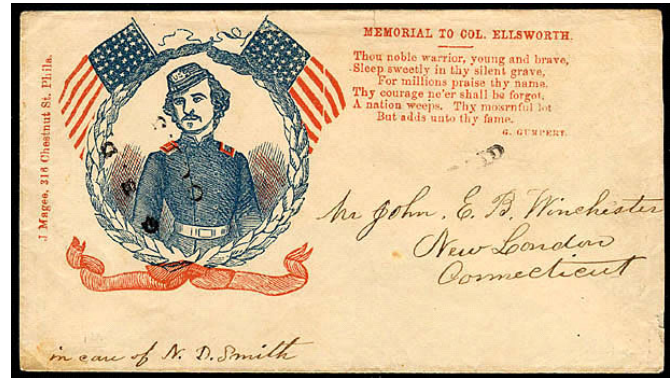 MEMORIAL TO COL. ELLSWORTH.
Thou noble warrior, young and brave,
Sleep sweetly in thy silent grave,
For millions praise thy name.
Thy courage ne'er shall be forgot,
A nation weeps. Thy mournful lot
But adds unto thy fame.
G. GUMPERT.
J Magee, 316 Chestnut St. Phila.
Mr John. E. B. Winchester
New London
Connecticut
in care of N. D. Smith